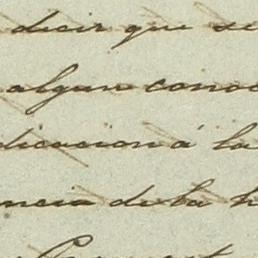 decir que se
algun conoc
dicacion á la
ncia de la h